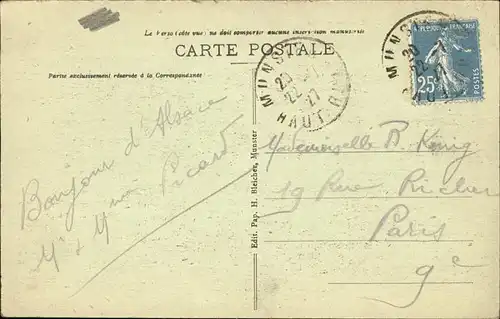 Le Verso (côté vue) ne doit comporter aucune inscription manuscrite
CARTE POSTALE
Partie exclusivement réservée à la Correspondance
Bonjour d'Alsace
Mr & Mme Picard
Edit. Pap. H. Bleicher, Munster
MUNSTER
20
22 27
HAUT-RHIN
25c
POSTES
Mademoiselle R. König
19 Rue Richer
Paris
9e